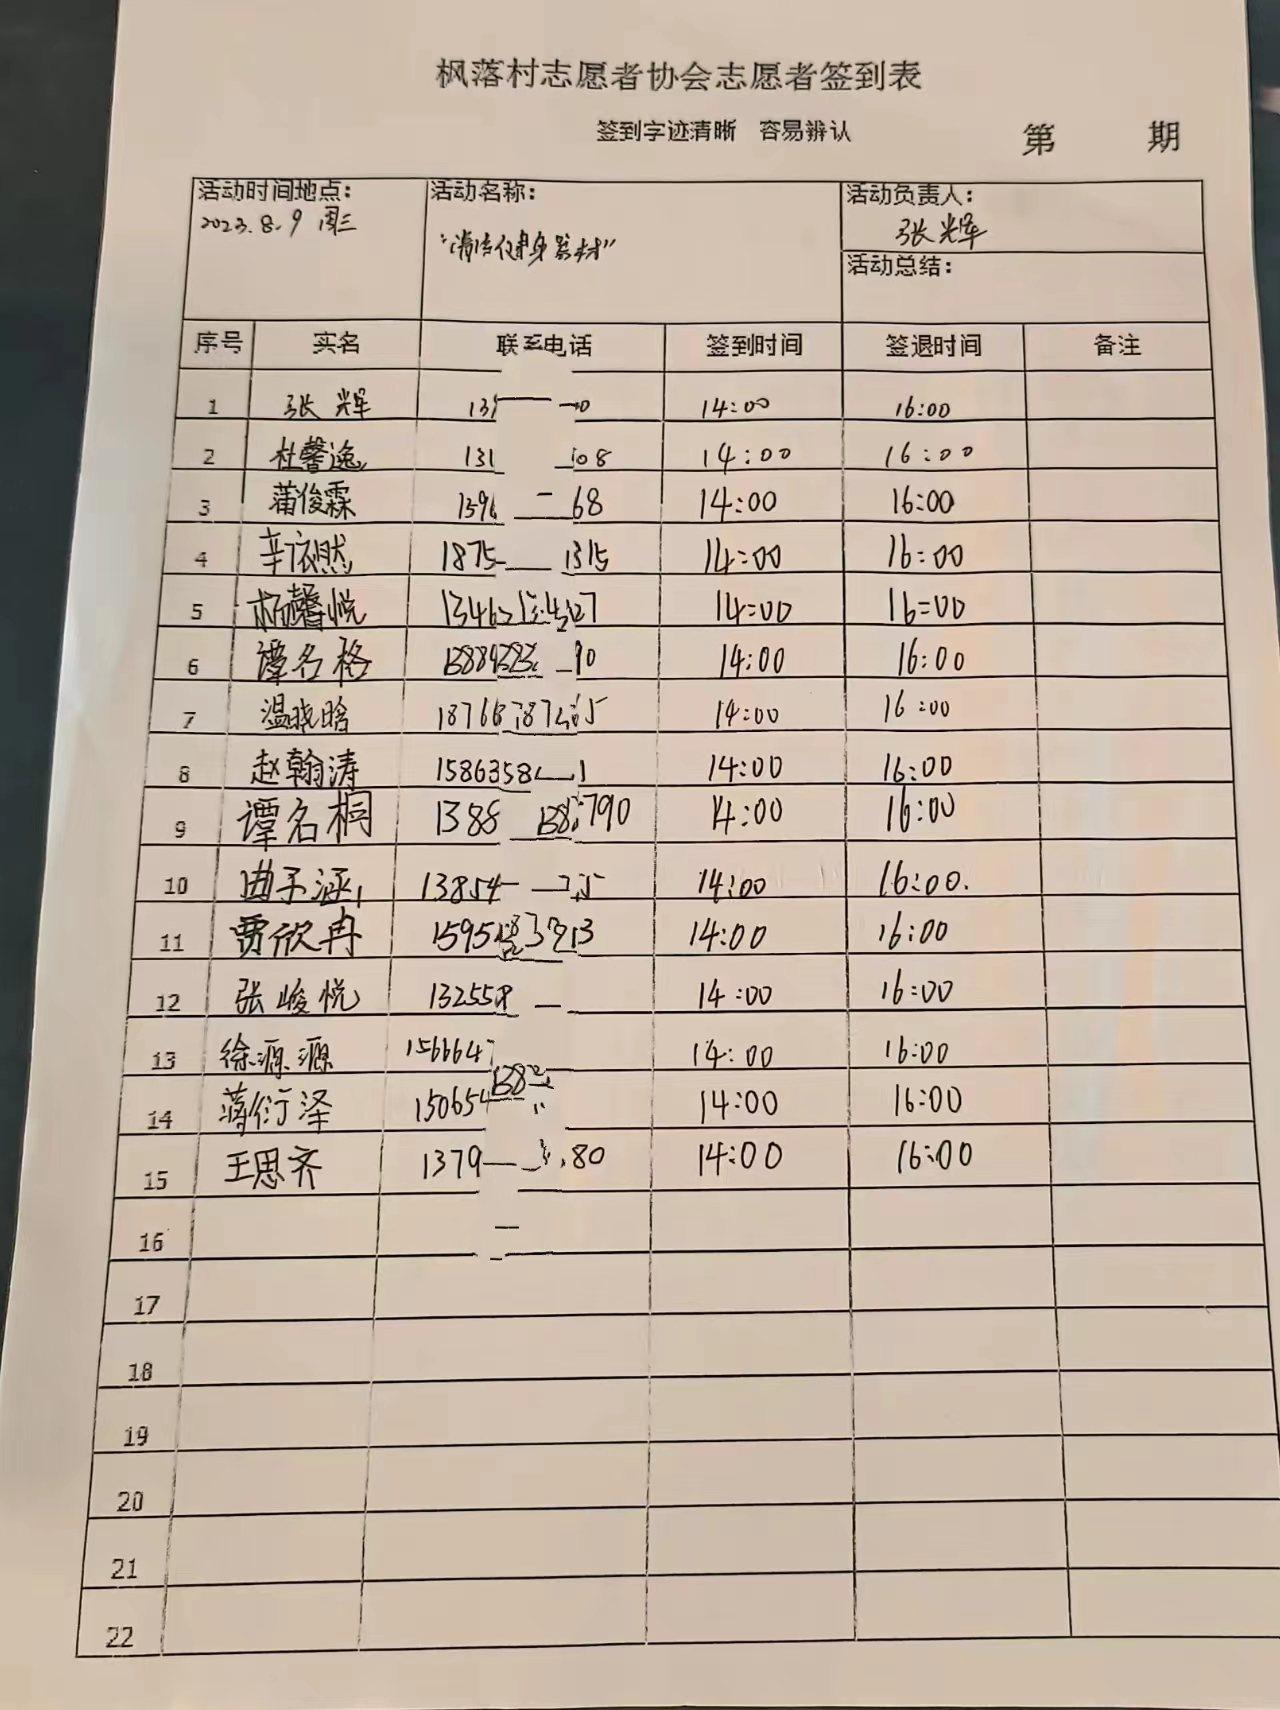 枫落村志愿者协会志愿者签到表
签到字迹清晰 容易辨认
第 期
活动时间地点： 活动名称： 活动负责人：
2023.8.9 周三 "清洁健身器材" 张辉
活动总结：
序号 实名 联系电话 签到时间 签退时间 备注
1 张辉 14:00 16:00
2 杜馨逸 131 08 14:00 16:00
3 蒲俊霖 1396 68 14:00 16:00
4 辛依然 1875 1315 14:00 16:00
5 杨馨悦 1346 27 14:00 16:00
6 谭名格 90 14:00 16:00
7 温晓晗 18766 14:00 16:00
8 赵翰涛 1586358 1 14:00 16:00
9 谭名桐 1388 790 14:00 16:00
10 曲子涵 13854 14:00 16:00
11 贾欣冉 1595 13 14:00 16:00
12 张峻悦 132558 14:00 16:00
13 徐源源 1566647 14:00 16:00
14 蒋衍泽 150654 14:00 16:00
15 王思齐 1379 80 14:00 16:00
16
17
18
19
20
21
22